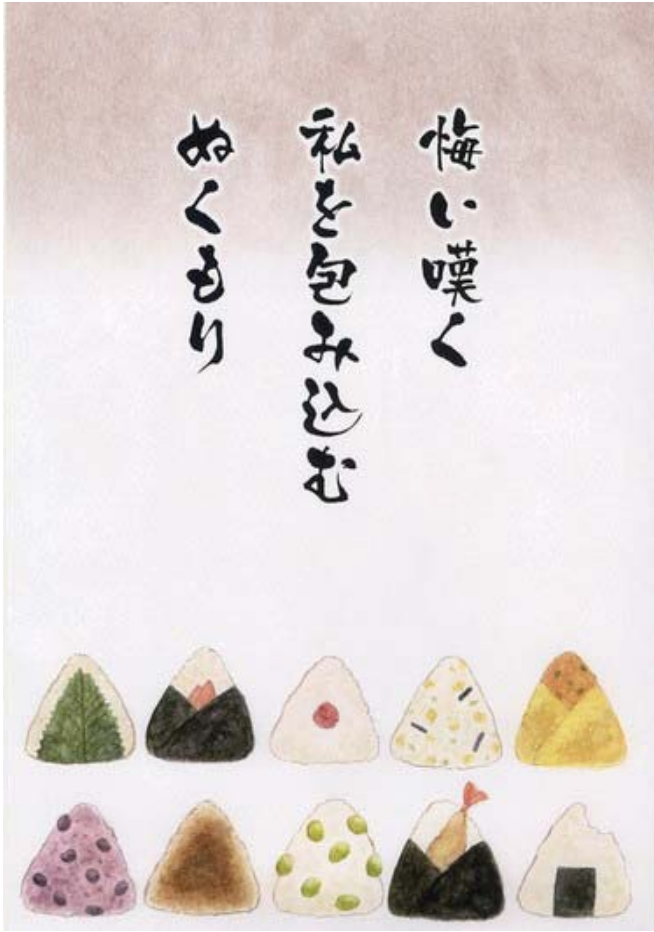 悔い嘆く
私を包み込む
ぬくもり